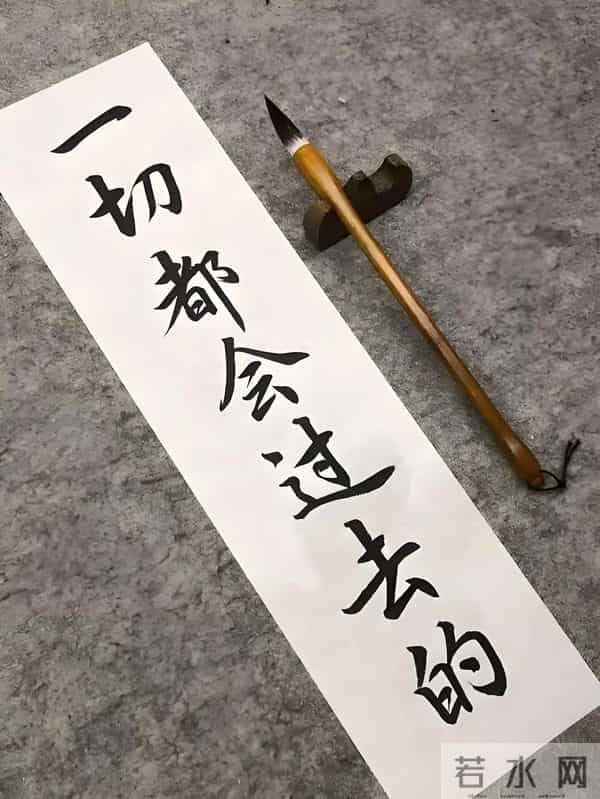 一切都会过去的
若水网